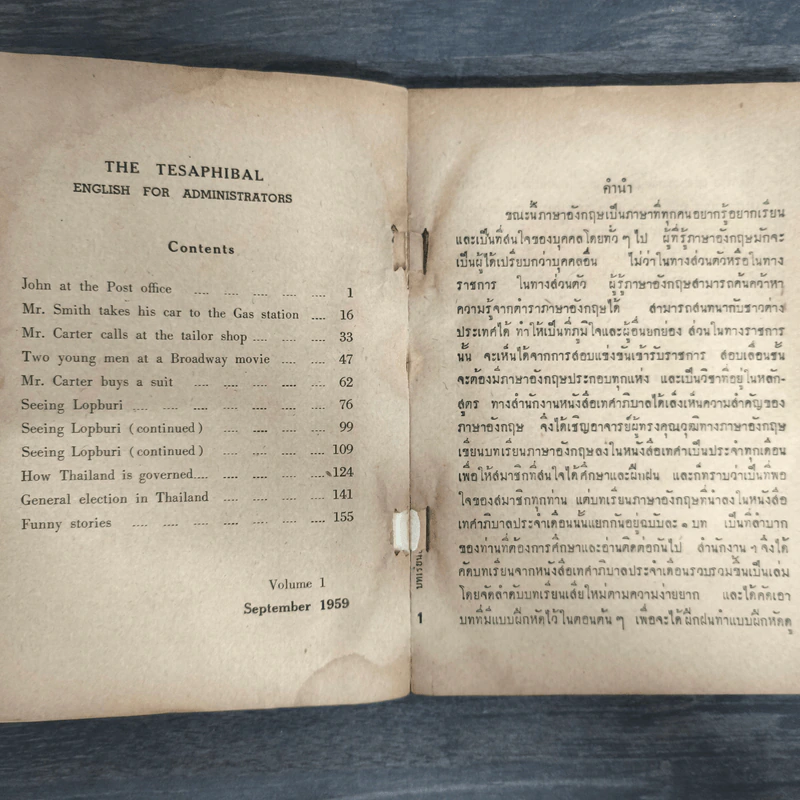 THE TESAPHIBAL
ENGLISH FOR ADMINISTRATORS
Contents
John at the Post office .... .... .... .... .... 1
Mr. Smith takes his car to the Gas station .... 16
Mr. Carter calls at the tailor shop .... .... .... 33
Two young men at a Broadway movie .... .... 47
Mr. Carter buys a suit .... .... .... .... .... 62
Seeing Lopburi .... .... .... .... .... .... 76
Seeing Lopburi (continued) .... .... .... .... 99
Seeing Lopburi (continued) .... .... .... .... 109
How Thailand is governed.... .... .... .... 124
General election in Thailand .... .... .... .... 141
Funny stories .... .... .... .... .... .... 155
Volume 1
September 1959
คำนำ
ขณะนี้ภาษาอังกฤษเป็นภาษาที่ทุกคนอยากรู้อยากเรียน
และเป็นที่สนใจของบุคคลโดยทั่ว ๆ ไป ผู้ที่รู้ภาษาอังกฤษมักจะ
เป็นผู้ได้เปรียบกว่าบุคคลอื่น ไม่ว่าในทางส่วนตัวหรือในทาง
ราชการ ในทางส่วนตัว ผู้รู้ภาษาอังกฤษสามารถค้นคว้าหา
ความรู้จากตำราภาษาอังกฤษได้ สามารถสนทนากับชาวต่าง
ประเทศได้ ทำให้เป็นที่ภูมิใจและผู้อื่นยกย่อง ส่วนในทางราชการ
นั้น จะเห็นได้จากการสอบแข่งขันเข้ารับราชการ สอบเลื่อนชั้น
จะต้องมีภาษาอังกฤษประกอบทุกแห่ง และเป็นวิชาที่อยู่ในหลัก-
สูตร ทางสำนักงานหนังสือเทศาภิบาลได้เล็งเห็นความสำคัญของ
ภาษาอังกฤษ จึงได้เชิญอาจารย์ผู้ทรงคุณวุฒิทางภาษาอังกฤษ
เขียนบทเรียนภาษาอังกฤษลงในหนังสือเทศาเป็นประจำทุกเดือน
เพื่อให้สมาชิกที่สนใจได้ศึกษาและฝึกฝน และก็ทราบว่าเป็นที่พอ
ใจของสมาชิกทุกท่าน แต่บทเรียนภาษาอังกฤษที่นำลงในหนังสือ
เทศาภิบาลประจำเดือนนั้นแยกกันอยู่ฉบับละ ๑ บท เป็นที่ลำบาก
ของท่านที่ต้องการศึกษาและอ่านติดต่อกันไป สำนักงาน ฯ จึงได้
คัดบทเรียนจากหนังสือเทศาภิบาลประจำเดือนรวบรวมขึ้นเป็นเล่ม
โดยจัดลำดับบทเรียนเสียใหม่ตามความง่ายยาก และได้คัดเอา
บทที่มีแบบฝึกหัดไว้ในตอนต้น ๆ เพื่อจะได้ฝึกฝนทำแบบฝึกหัดดู
บทเรียน
1